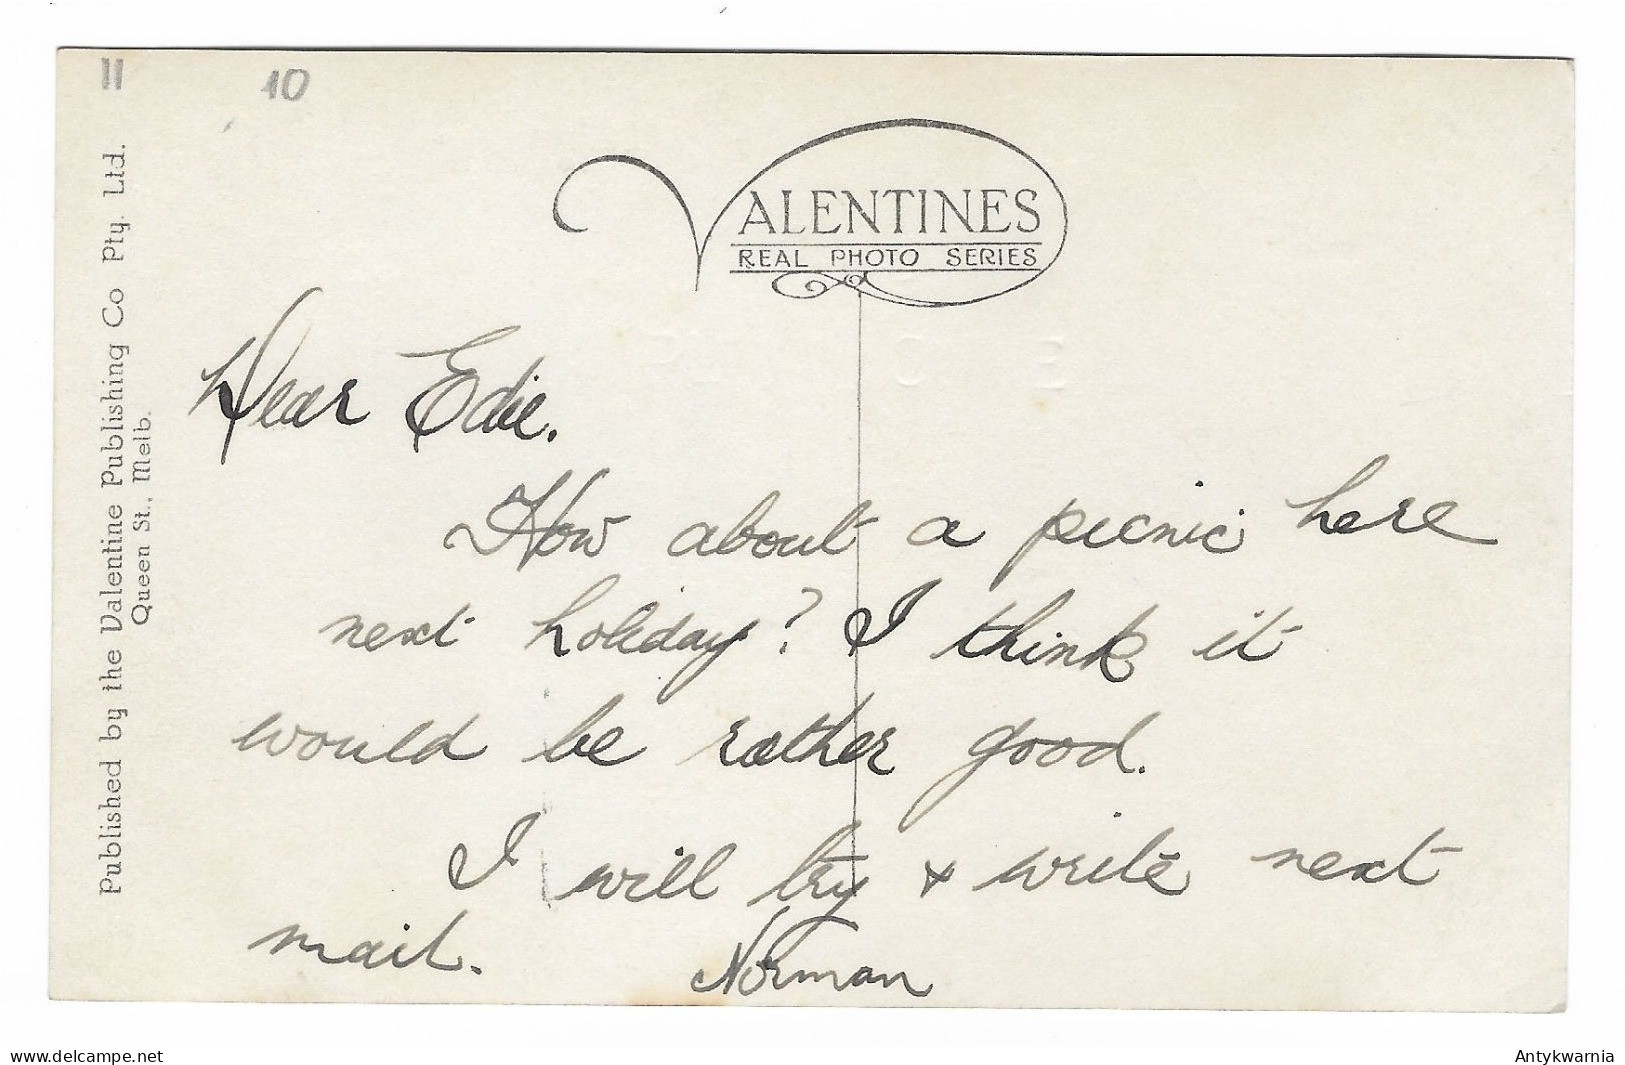 11
10
VALENTINES
REAL PHOTO SERIES
Published by the Valentine Publishing Co Pty. Ltd.
Queen St., Melb.
Dear Edie.
How about a picnic here
next holiday? I think it
would be rather good.
I will try & write next
mail. Norman
www.delcampe.net
Antykwarnia